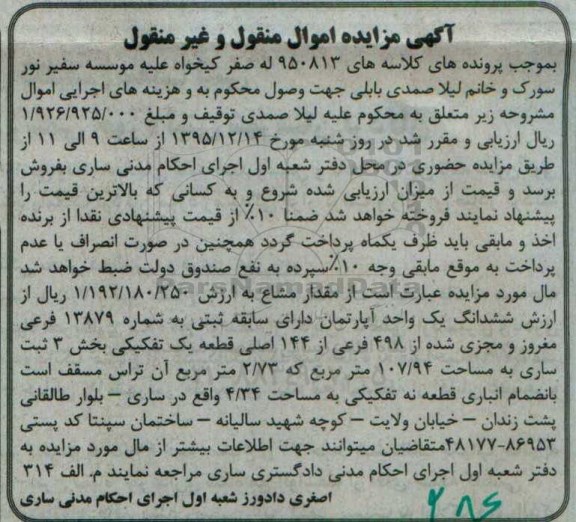 آگهی مزایده اموال منقول و غیر منقول
بموجب پرونده های کلاسه های ۹۵۰۸۱۳ له صفر کیخواه علیه موسسه سفیر نور
سورک و خانم لیلا صمدی بابلی جهت وصول محکوم به و هزینه های اجرایی اموال
مشروحه زیر متعلق به محکوم علیه لیلا صمدی توقیف و مبلغ ۱/۹۲۶/۹۲۵/۰۰۰
ریال ارزیابی و مقرر شد در روز شنبه مورخ ۱۳۹۵/۱۲/۱۴ از ساعت ۹ الی ۱۱ از
طریق مزایده حضوری در محل دفتر شعبه اول اجرای احکام مدنی ساری بفروش
برسد و قیمت از میزان ارزیابی شده شروع و به کسانی که بالاترین قیمت را
پیشنهاد نمایند فروخته خواهد شد ضمنا ۱۰٪ از قیمت پیشنهادی نقدا از برنده
اخذ و مابقی باید ظرف یکماه پرداخت گردد همچنین در صورت انصراف یا عدم
پرداخت به موقع مابقی وجه ۱۰٪سپرده به نفع صندوق دولت ضبط خواهد شد
مال مورد مزایده عبارت است از مقدار مشاع به ارزش ۱/۱۹۲/۱۸۰/۲۵۰ ریال از
ارزش ششدانگ یک واحد آپارتمان دارای سابقه ثبتی به شماره ۱۳۸۷۹ فرعی
مفروز و مجزی شده از ۴۹۸ فرعی از ۱۴۴ اصلی قطعه یک تفکیکی بخش ۳ ثبت
ساری به مساحت ۱۰۷/۹۴ متر مربع که ۲/۷۳ متر مربع آن تراس مسقف است
بانضمام انباری قطعه نه تفکیکی به مساحت ۴/۳۴ واقع در ساری – بلوار طالقانی
پشت زندان – خیابان ولایت – کوچه شهید سالیانه – ساختمان سپنتا کد پستی
۴۸۱۷۷-۸۶۹۵۳متقاضیان میتوانند جهت اطلاعات بیشتر از مال مورد مزایده به
دفتر شعبه اول اجرای احکام مدنی دادگستری ساری مراجعه نمایند م. الف ۳۱۴
اصغری دادورز شعبه اول اجرای احکام مدنی ساری
ParsNamadData